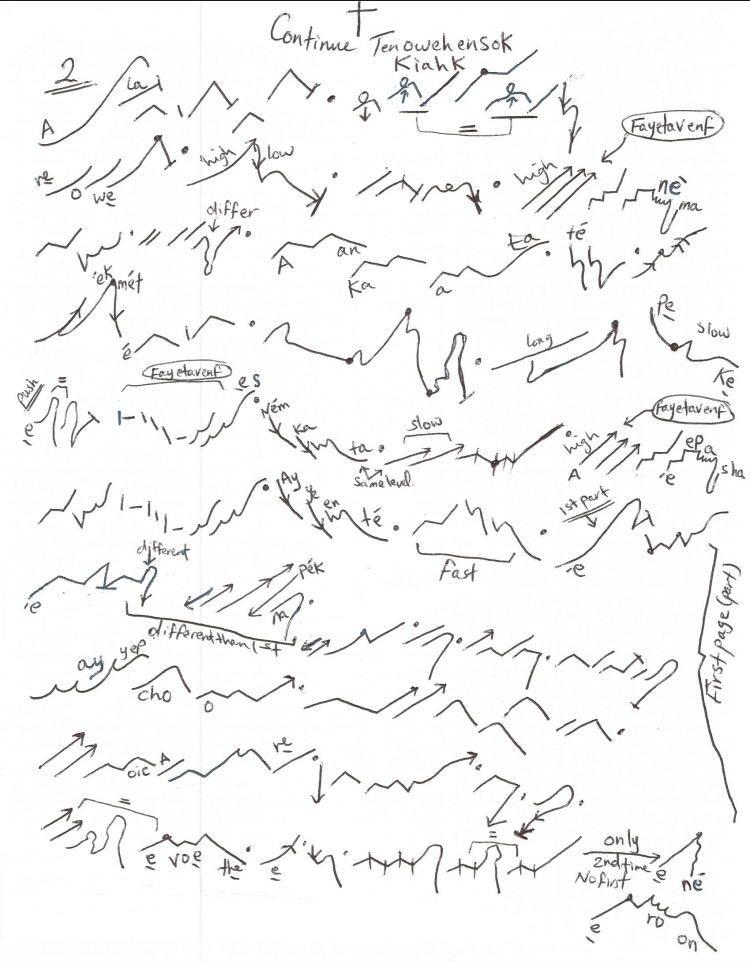 Continue Tenowehensok
Kiahk
2
A la
=
Fayetavenf
re o we high low high né ma
differ
A an Ka a Ea té
ék mét
é i long Pe slow Ke
Fayetavenf
Push = é es Ném Ka ta slow
same level
Fayetavenf
high A é ep a sha
Ay ye en té fast 1st part é
different
é pék na
different than 1st
First page (part)
ay yep cho o
oic A re
= e voe the e =
only
2nd time
No first
e né
e ro on